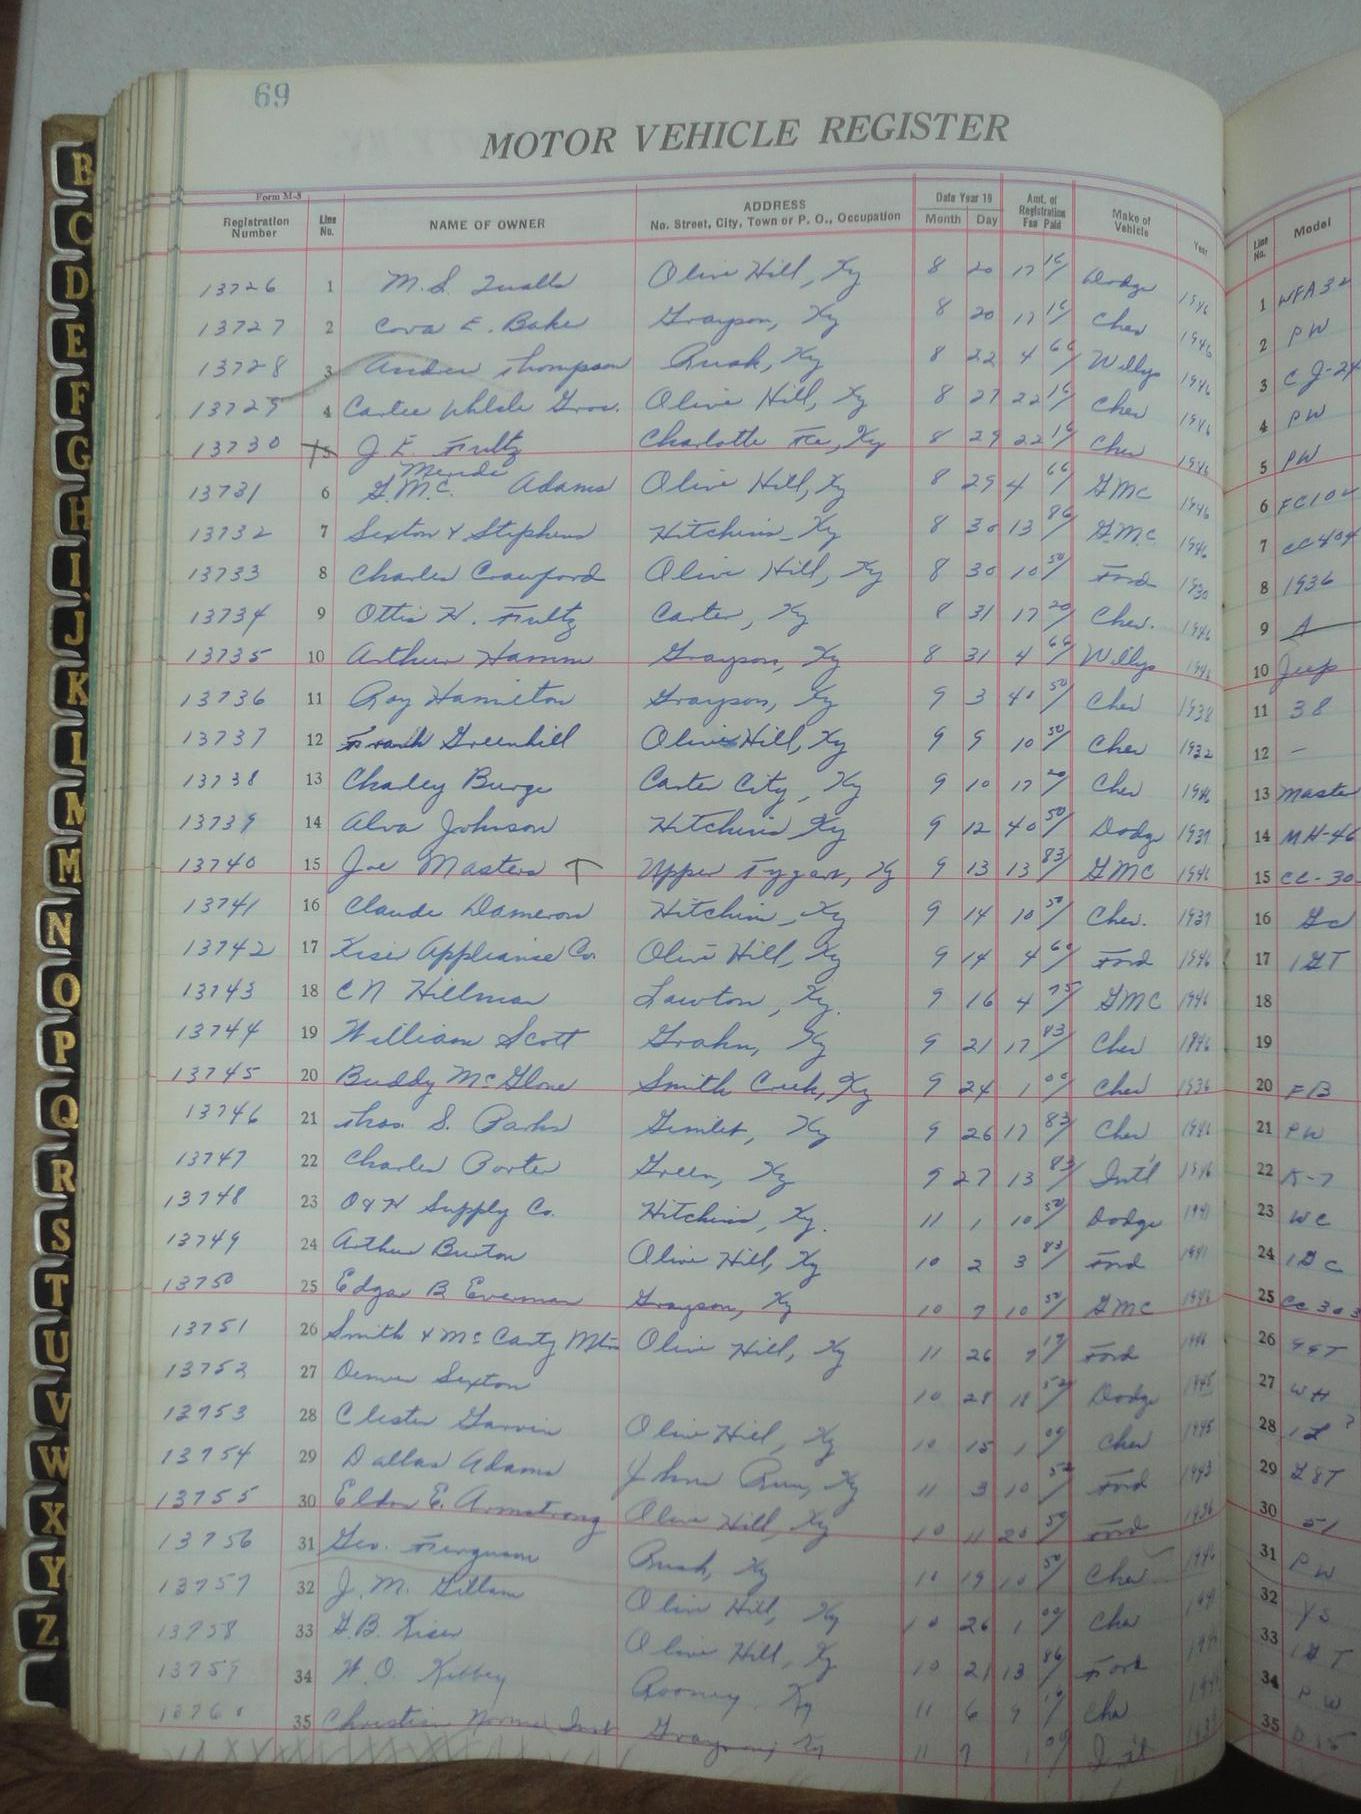 69
MOTOR VEHICLE REGISTER
Form M-8
Registration Number Line No. NAME OF OWNER ADDRESS No. Street, City, Town or P. O., Occupation Date Year 19 Month Day Amt. of Registration Fee Paid Make of Vehicle Year Line No. Model
13726 1 M.S. Qualls Olive Hill, Ky 8 20 17 16/ Dodge 1946 1 WFA32
13727 2 Cora E. Baker Grayson, Ky 8 20 17 16/ Chev 1946 2 PW
13728 3 Thompson Rush, Ky 8 22 4 66/ Willys 1946 3 CJ-2A
13729 4 Carter Whlsle Groc. Olive Hill, Ky 8 27 22 16/ Chev 1946 4 PW
13730 5 J. E. Fultz Charlotte Fce, Ky 8 29 22 16/ Chev 1946 5 PW
13731 6 G.M.C. Adams Olive Hill, Ky 8 29 4 66/ GMC 1946 6 FC102
13732 7 Sexton & Stephens Hitchins, Ky 8 30 13 86/ G.M.C. 1946 7 CC404
13733 8 Charles Crawford Olive Hill, Ky 8 30 10 50/ Ford 1930 8 1936
13734 9 Ottis H. Fultz Carter, Ky 8 31 17 20/ Chev. 1946 9 A
13735 10 Arthur Hamm Grayson, Ky 8 31 4 66/ Willys 1946 10 Jeep
13736 11 Roy Hamilton Grayson, Ky 9 3 40 50/ Chev 1938 11 38
13737 12 Frank Greenhill Olive Hill, Ky 9 9 10 50/ Chev 1932 12 –
13738 13 Charley Burge Carter City, Ky 9 10 17 20/ Chev 1946 13 Master
13739 14 Alva Johnson Hitchins Ky 9 12 40 50/ Dodge 1937 14 MH-46
13740 15 Joe Masters Upper Tygart, Ky 9 13 13 83/ GMC 1946 15 CC-30
13741 16 Claude Dameron Hitchins, Ky 9 14 10 50/ Chev. 1937 16 GC
13742 17 Kiser Appliance Co. Olive Hill, Ky 9 14 4 60/ Ford 1946 17 1GT
13743 18 C N Hillman Lawton, Ky. 9 16 4 75/ GMC 1946 18
13744 19 William Scott Grahn, Ky 9 21 17 83/ Chev 1946 19
13745 20 Buddy McGlone Smith Creek, Ky 9 24 1 00/ Chev 1936 20 FB
13746 21 Thos. S. Parks Gimlet, Ky 9 26 17 83/ Chev 1946 21 PW
13747 22 Charles Porter Green, Ky 9 27 13 83/ Int'l 1946 22 K-7
13748 23 O & H Supply Co. Hitchins, Ky. 11 1 10 50/ Dodge 1941 23 WC
13749 24 Arthur Burton Olive Hill, Ky 10 2 3 83/ Ford 1941 24 1GC
13750 25 Edgar B Everman Grayson, Ky 10 7 10 50/ GMC 1946 25 CC303
13751 26 Smith & McCarty Mtrs Olive Hill, Ky 11 26 7 17/ Ford 1946 26 99T
13752 27 Denver Sexton 10 28 18 52/ Dodge 1945 27 WH
13753 28 Clester Garvin Olive Hill, Ky 10 15 1 00/ Chev 1945 28
13754 29 Dallas Adams Johns Run, Ky 11 3 10 52 Ford 1943 29 G8T
13755 30 Eldon E. Armstrong Olive Hill, Ky 10 11 20 50/ Ford 1936 30 51
13756 31 Geo. Ferguson Rush, Ky 10 19 10 50/ Chev 1946 31 PW
13757 32 J. M. Gillam Olive Hill, Ky 10 26 1 00/ Chev 1941 32 YS
13758 33 G.B. Kiser Olive Hill, Ky 10 21 13 86/ Ford 33 1GT
13759 34 W. O. Kibbey Rooney, Ky 11 6 9 Chev 34 PW
13760 35 Christian Normal Inst Grayson, Ky 11 7 1 00/ Int'l 35 D15
B
C
D
E
F
G
H
I
J
K
L
M
M
N
O
P
Q
R
S
T
U
V
W
X
Y
Z